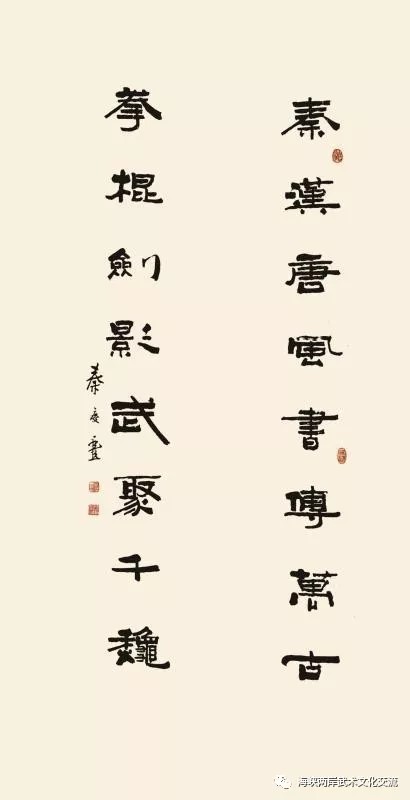 秦漢唐風書傳萬古
拳棍劍影武聚千龝
秦
海峡两岸武术文化交流